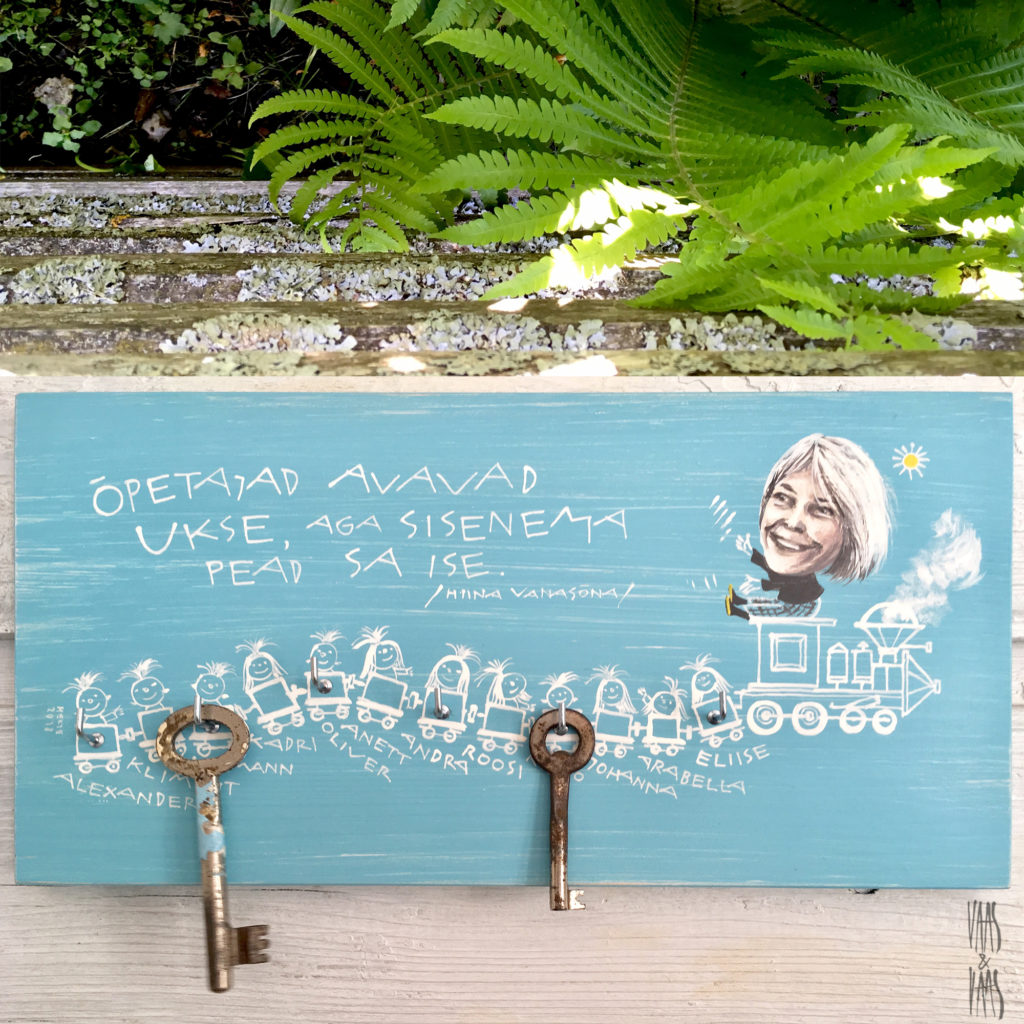 ÕPETAJAD AVAVAD
UKSE, AGA SISENEMA
PEAD SA ISE.
/HIINA VANASÕNA/
ALEXANDER
KADRI
OLIVER
ANETT
ANDRA
ROOSI
JOHANNA
ARABELLA
ELIISE
VAAS
&
VAAS